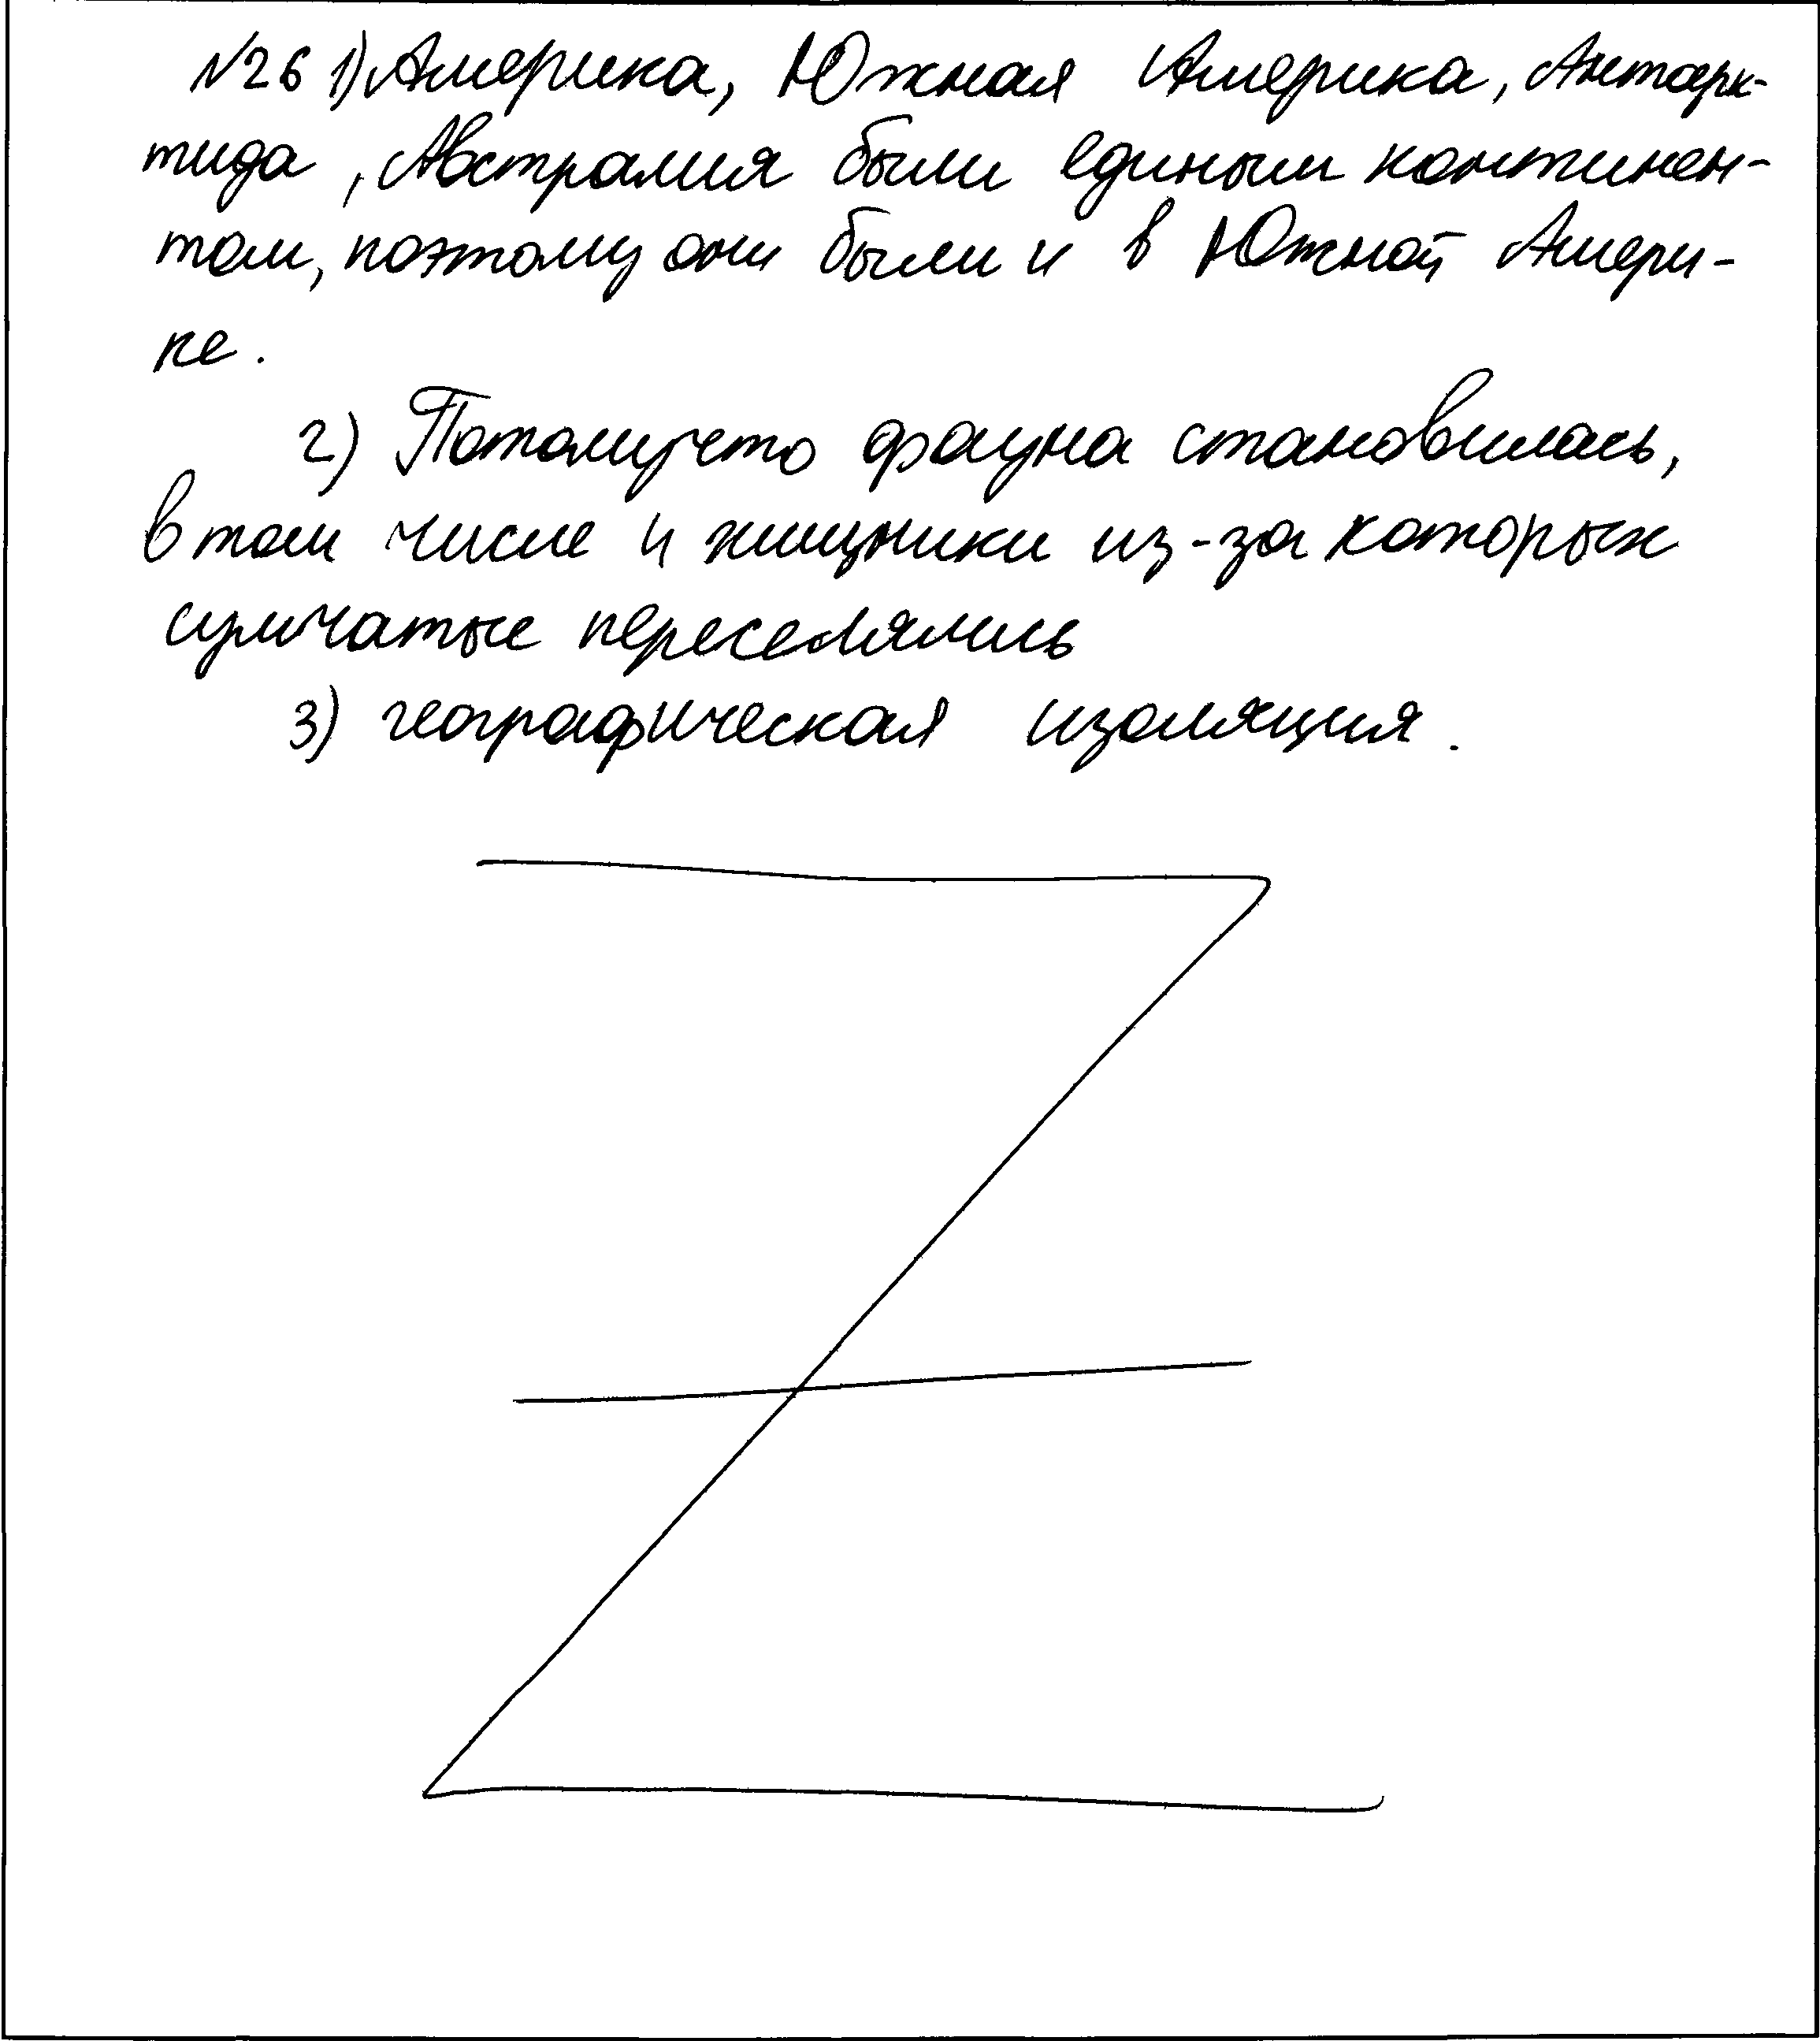 №26 1) Америка, Южная Америка, Антарк-
тида, Австралия были единым континен-
том, поэтому они были и в Южной Амери-
ке.
2) Потомучто фауна становилась,
в том числе и хищники из-за которых
сумчатые переселялись
3) географическая изоляция.